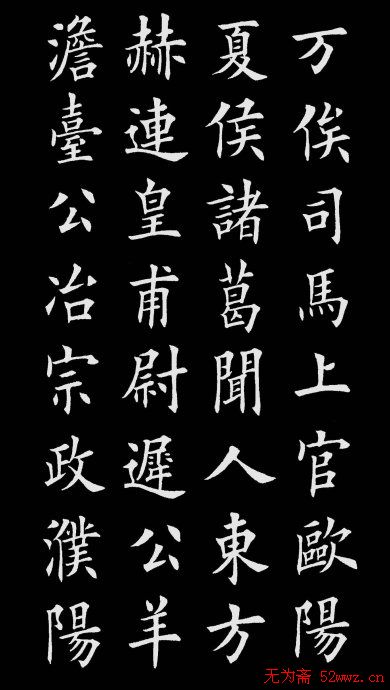 万俟司馬上官歐陽
夏侯諸葛聞人東方
赫連皇甫尉遲公羊
澹臺公冶宗政濮陽
无为斋 52wwz.cn